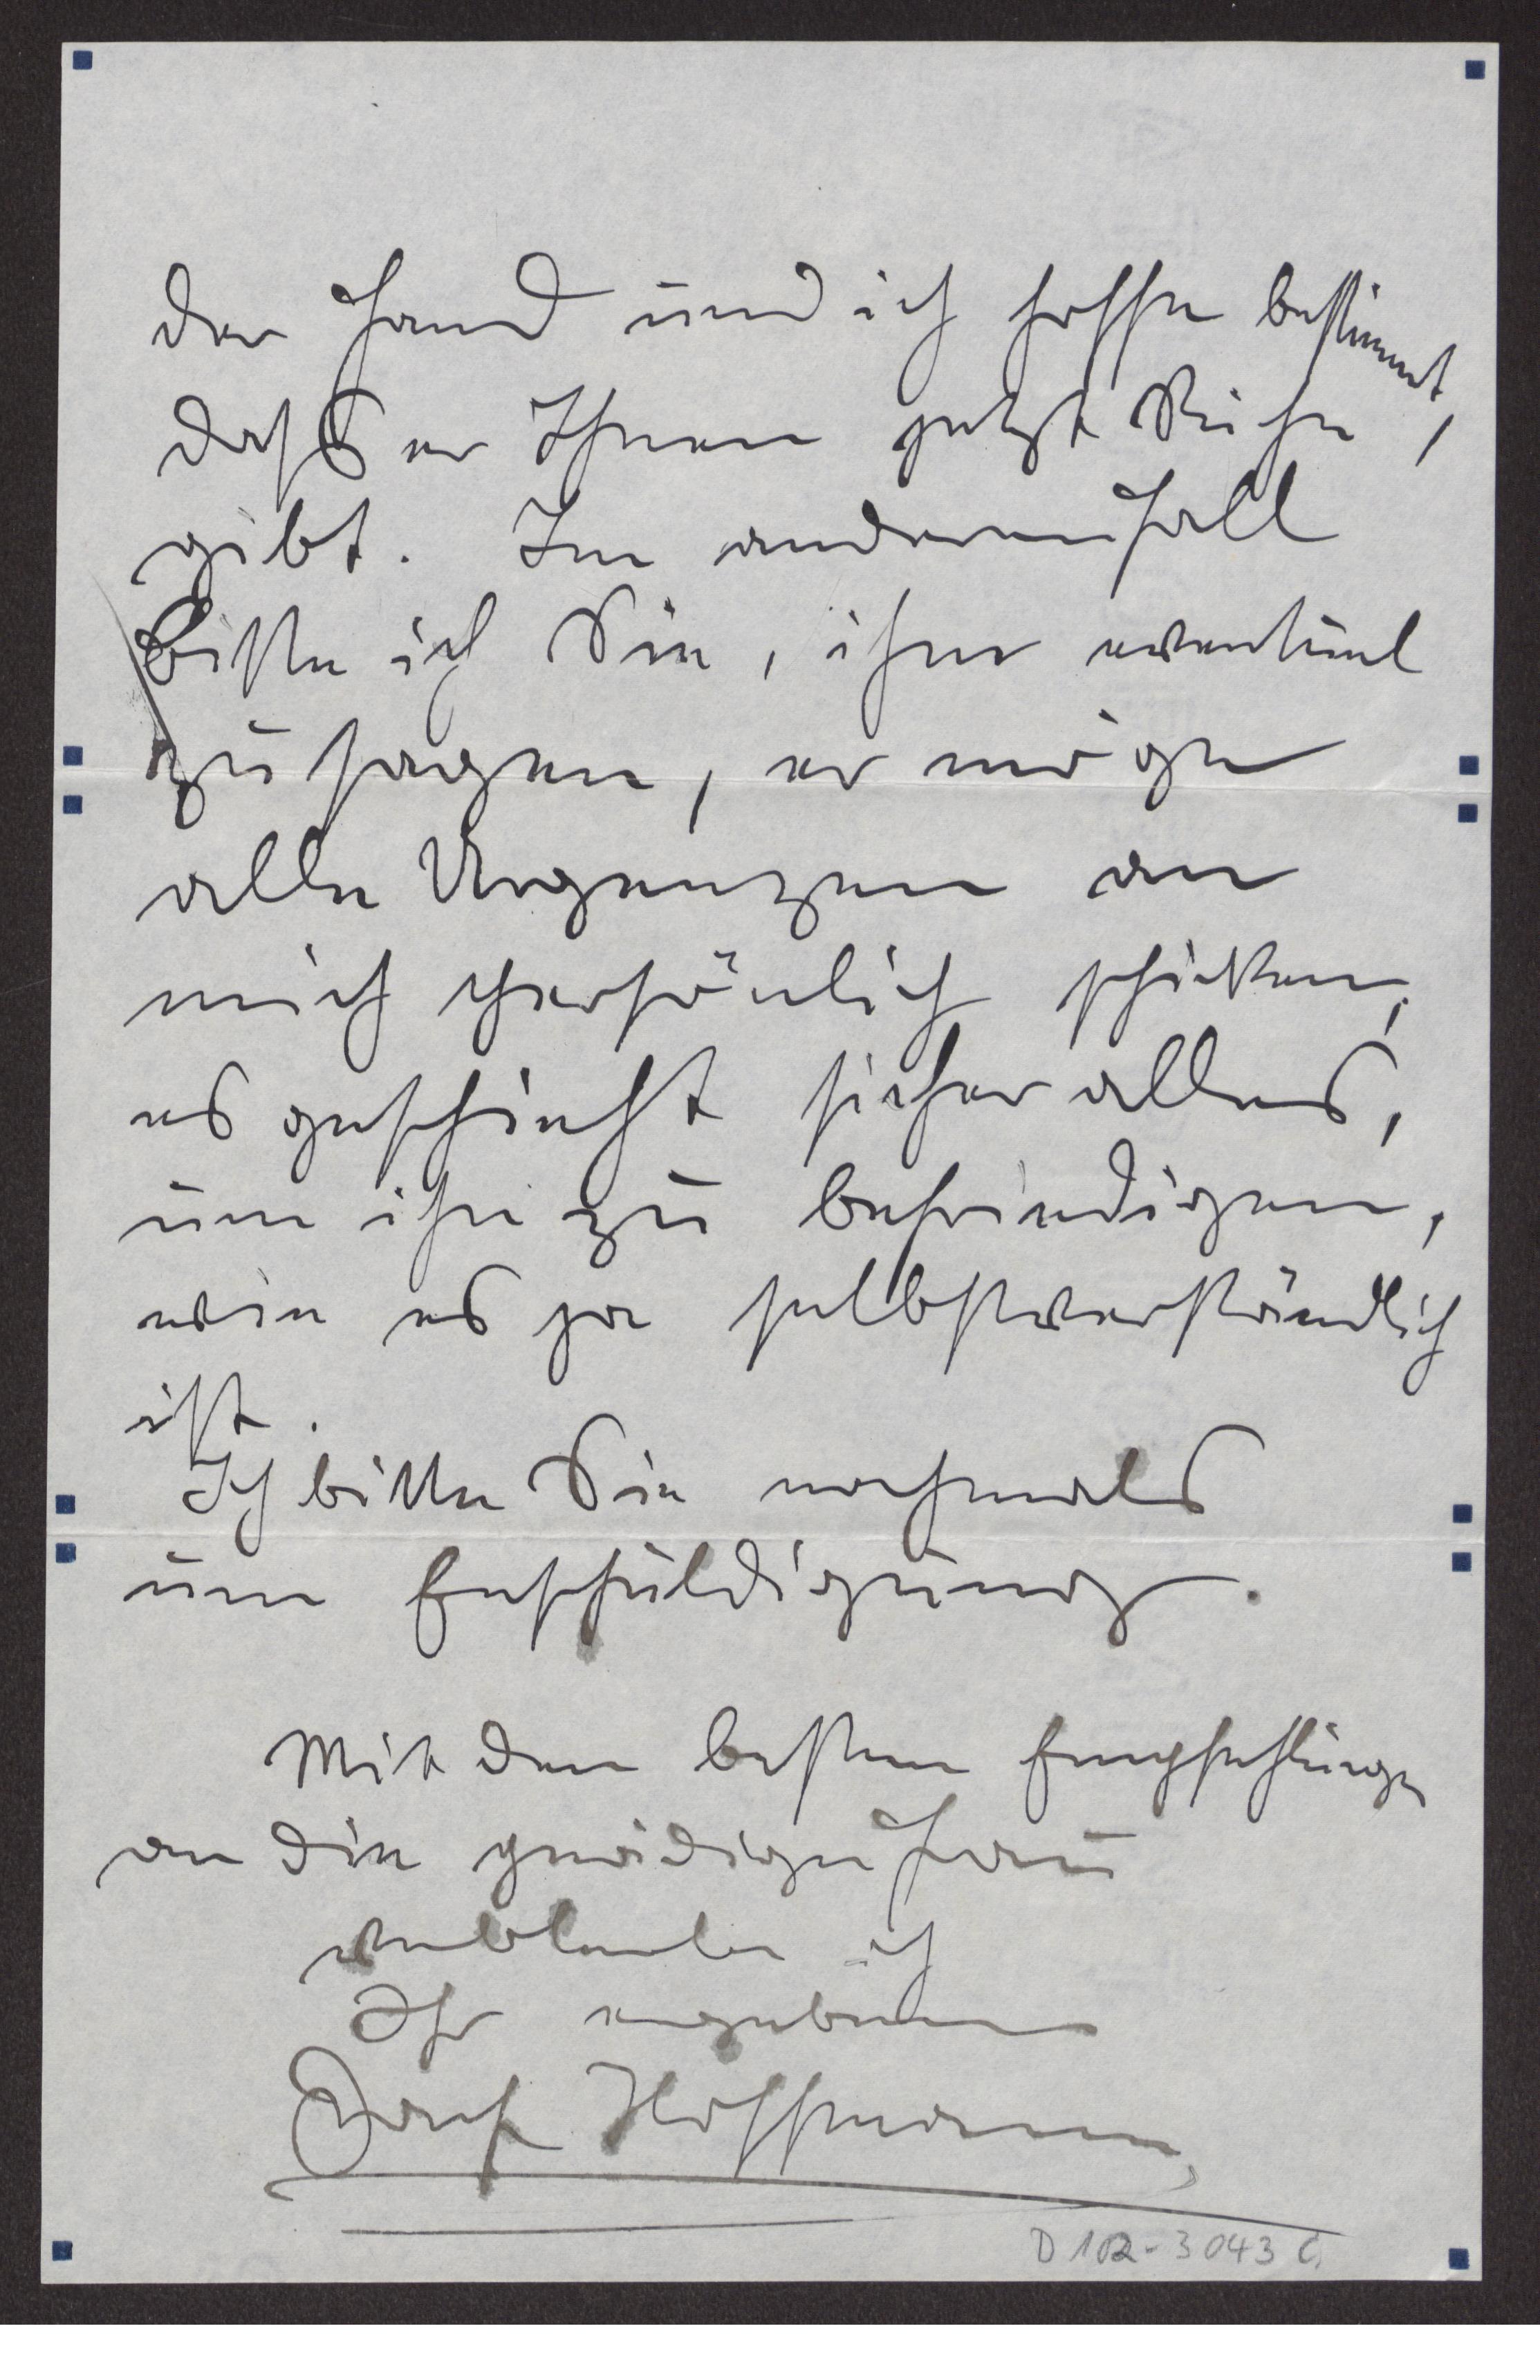 der Hand und ich hoffe bestimmt,
dass er Ihnen jetzt Ruhe
gibt. Im anderenfall
bitte ich Sie, ihm eventuel
zu sagen, er möge
alle Urgenzen an
mich persönlich schicken,
es geschieht sicher alles,
um ihn zu befriedigen,
wie es ja selbstverständlich
ist.
Ich bitte Sie nochmals
um Enschuldigung.
Mit den besten Empfehlungen
an die gnädige Frau
verbleibe ich
Ihr ergebener
Josef Hoffmann
D 102-3043 C